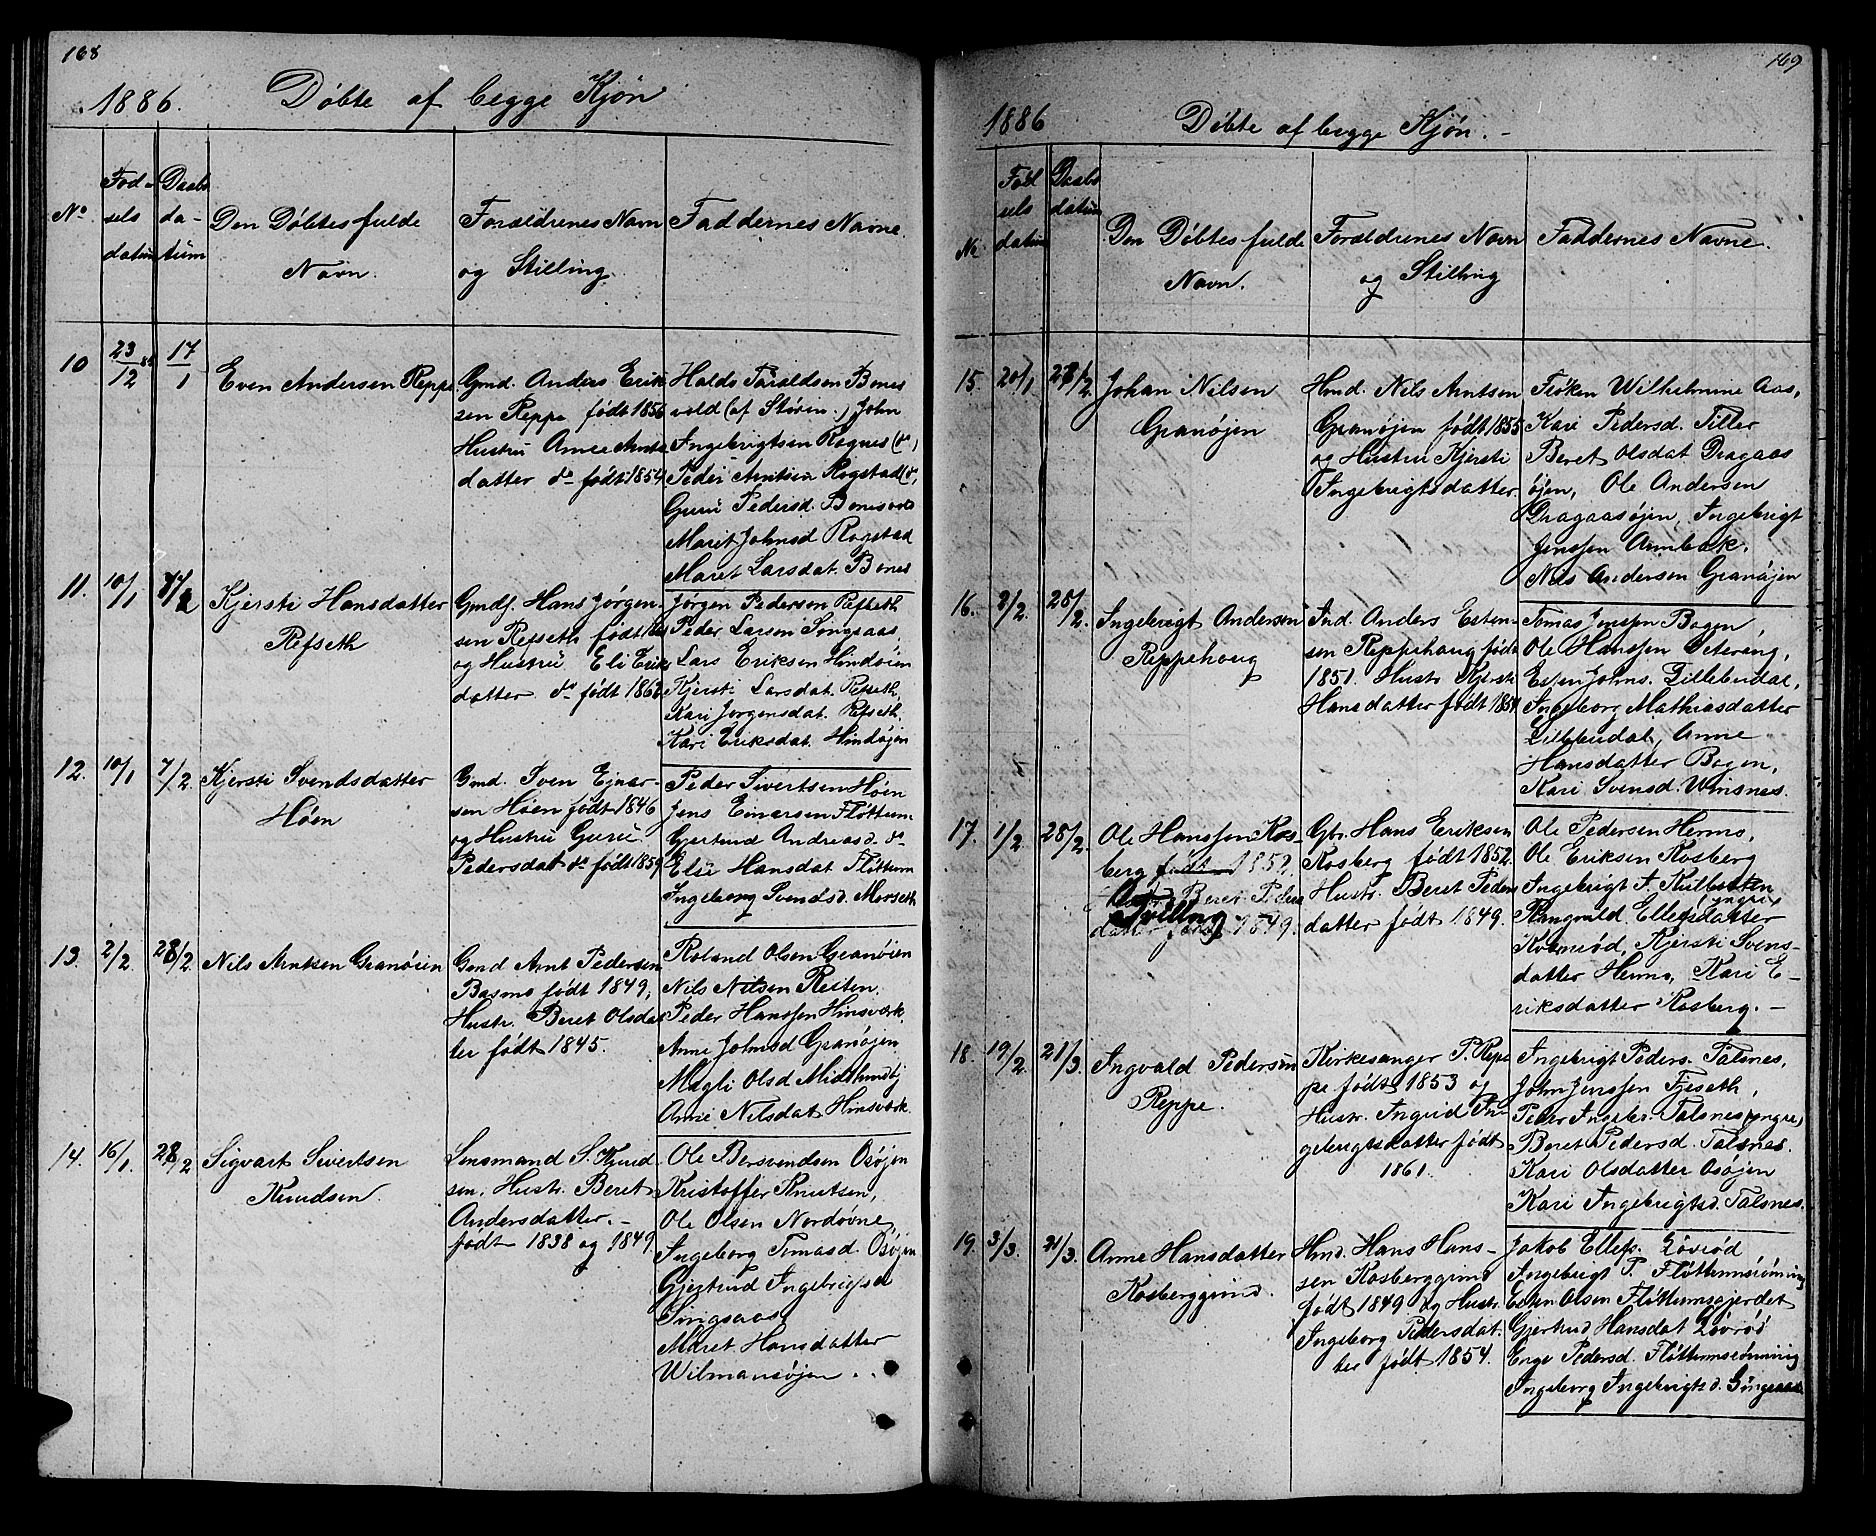 168
1886. Døbte af begge Kjøn
No
Fød-
sels
datum
Daabs
da-
tum
Den Døbtes fulde
Navn.
Forældrenes Navn
og Stilling.
Faddernes Navne.
10 23/12 85 17/1
Even Andersen Reppe
Gmd. Anders Erik
sen Reppe født 1856
Hustru Anne Arnts
datter do født 1854
Haldo Taraldsen Bones
vold (af Støren.) John
Ingebrigtsen Rognes (do)
Peder Arntsen Rogstad (do,
Guru Pedersd. Bonesvold
Marit Johnsd Rogstad
Maret Larsdat. Bones
11. 10/1 7/2
Kjersti Hansdatter
Refseth
Gmdf. Hans Jørgen-
sen Refseth født
og Hustru Eli Eriks
datter do født 1862
Jørgen Pedersen Refseth
Peder Larsen Singsaas,
Lars Eriksen Hindøien
Kjersti Larsdat. Refseth,
Kari Jørgensdat. Refseth.
Kari Eriksdat. Hindøjen
12. 10/1 7/2.
Kjersti Svendsdatter
Høen
Gmd. Sven Ejnar-
sen Høen født 1846
og Hustru Guru
Pedersdat do født 1859
Peder Sivertsen Høen
Jens Einarsen Fløttum.
Gjertrud Andreasd. do
Elie Hansdat Fløttum
Ingeborg Svendsd. Morseth
13. 2/2. 28/2.
Nils Arntsen Granøien
Gmd Arnt Pedersen
Basmo født 1849,
Hustr. Beret Olsdat
ter født 1845.
Roland Olsen Granøien
Nils Nilsen Resten.
Peder Hanssen Hinsværk.
Anne Johnsd Granøjen
Magli Olsd Midtlundbj
Anne Nilsdat Hinsværk.
14. 16/1. 28/2
Sigvart Sivertsen
Knudsen.
Lensmand S. Knud
sen, Hustr. Beret
Andersdatter. -
født 1838 og 1849
Ole Bersvendsen Osøjen
Kristoffer Knutsen,
Ole Olsen Nordøvne,
Ingeborg Tomasd. Osøjen
Gjertrud Ingebrigtsd
Singsaas,
Maret Hansdatter
Wilmansøjen . .
169
1886 Døbte af begge Kjøn. -
No
Fød
sels
datum
Daabs
datum
Den Døbtes fulde
Navn.
Forældrenes Navn
og Stilling
Faddernes Navne.
15. 20/1 28/2.
Johan Nilsen
Granøjen
Hmd. Nils Arntsen
Granøjen født 1855
og Hustru Kjersti
Ingebrigtsdatter.
Frøken Wilhelmine Aas,
Kari Pedersd. Tiller
Beret Olsdat Dragaas
øjen, Ole Andersen
Dragaasøjen, Ingebrigt
Jenssen Ambak.
Nils Andersen Granøjen
16. 2/2. 28/2.
Ingebrigt Andersen
Reppehaug
Ind. Anders Esten-
sen Reppehaug født
1851. Hustr. Kjersti
Hansdatter født 1854
Tomas Jenssen Bogen,
Ole Hanssen Oetering,
Esten Johns. Lillebudal,
Ingeborg Mathiasdatter
Lillebudal, Anne
Hansdatter Bogen,
Kari Svensd. Winsnes.
17. 1/2. 28/2.
Ole Hanssen Kos-
berg født 1852.
Hustr. Beret Peders
Tvilling
datter født 1849.
Gbr. Hans Eriksen
Kosberg født 1852.
Hustr. Beret Peders
datter født 1849.
Ole Pedersen Hermo,
Ole Eriksen Kosberg
Ingebrigt J. Kulbotten
(yngre)
Rangvald Ellefsdatter
Kvernrød, Kjersti Svens-
datter Hermo, Kari E-
riksdatter Kosberg. -
18. 19/2. 21/3.
Ingvald Pedersen
Reppe.
Kirkesanger P. Rep
pe født 1853 og
Hustr. Ingrid In
gebrigtsdatter født
1861.
Ingebrigt Peders. Talsnes,
John Jenssen Fjeseth,
Peder Ingebr. Talsnes (yngre)
Beret Pedersd. Talsnes.
Kari Olsdatter Osøjen
Kari Ingebrigtsd. Talsnes.
19. 3/3. 21/3.
Anne Hansdatter
Kosberggrind.
Hmd. Hans Hans-
sen Kosberggrind
født 1849 og Hustr.
Ingeborg Pedersdat.
ter født 1854.
Jakob Ellefs. Løvrød
Ingebrigt P. Fløttumsrønning
Esten Olsen Fløttumsgjerdet
Gjertrud Hansdat Løvrød
Enge Pedersd. Fløttumsrønning
Ingeborg Ingebrigtsd. Singsaas